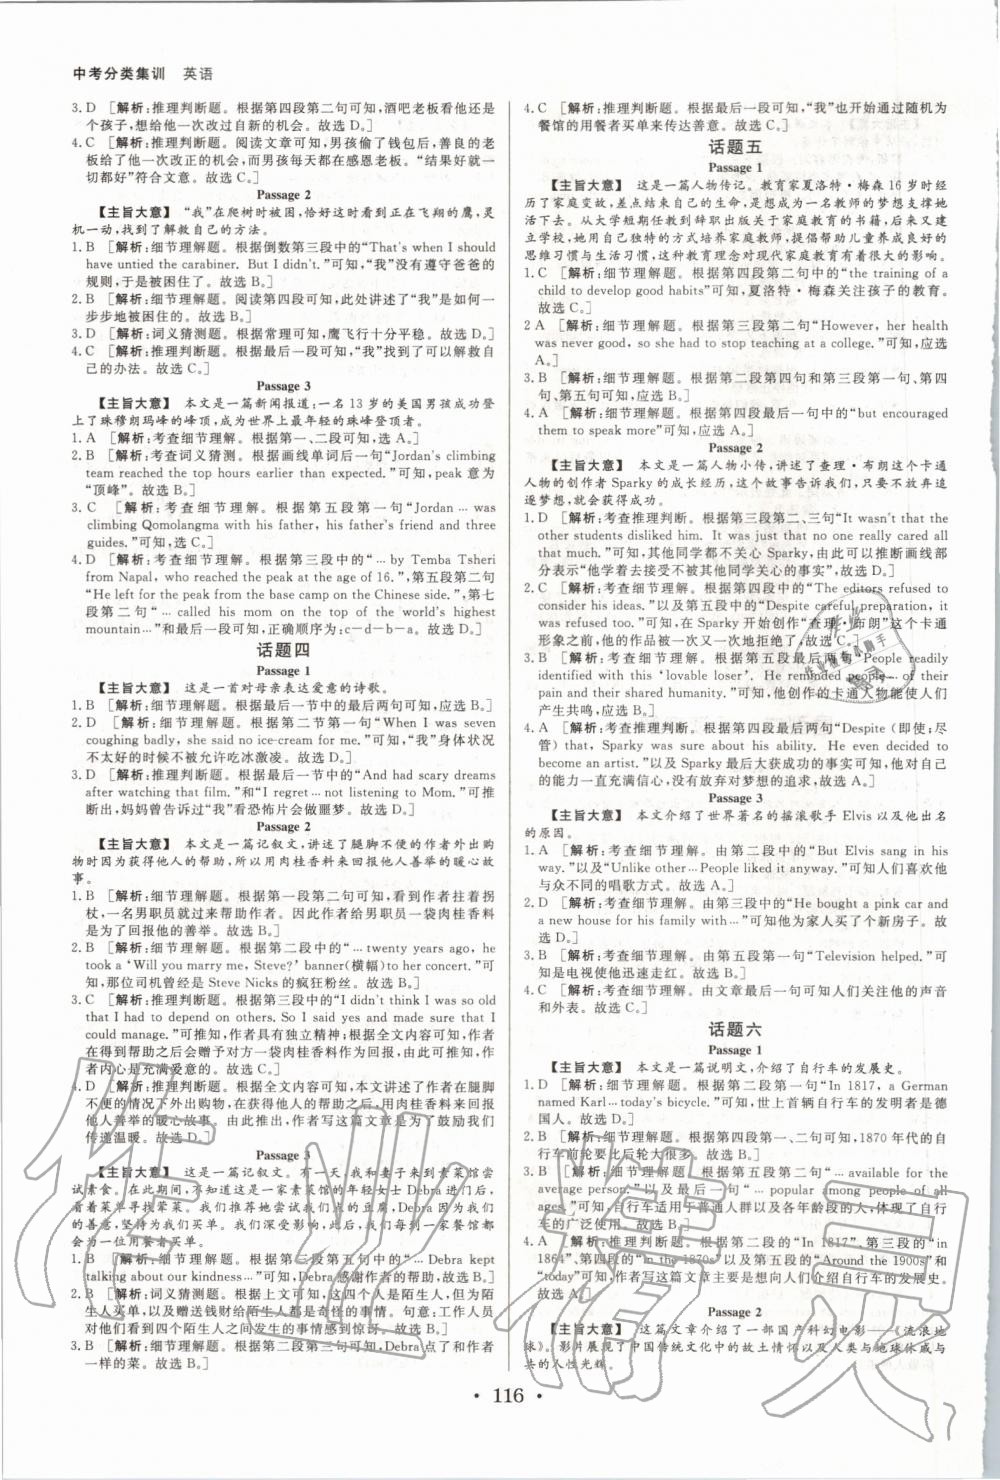 中考分类集训 英语
3. D [解析:推理判断题。根据第四段第二句可知,酒吧老板看他还是
个孩子,想给他一次改过自新的机会。故选 D。]
4. C [解析:推理判断题。阅读文章可知,男孩偷了钱包后,善良的老
板给了他一次改正的机会,而男孩多年后都在感恩老板。“结果好就一
切都好”符合文意。故选 C。]
Passage 2
【主旨大意】 “我”在爬树时被困,恰好这时看到正在飞翔的鹰,灵
机一动,找到了解救自己的方法。
1. B [解析:细节理解题。根据倒数第三段中的“That's when I should
have untied the carabiner. But I didn't.”可知,“我”没有遵守爸爸的
规则,于是被困住了。故选 B。]
2. B [解析:细节理解题。阅读第四段可知,此处讲述了“我”是如何一
步步地被困住的。故选 B。]
3. D [解析:词义猜测题。根据常理可知,鹰飞行十分平稳。故选 D。]
4. C [解析:推理判断题。根据最后一段可知,“我”找到了可以解救自
己的办法。故选 C。]
Passage 3
【主旨大意】 本文是一篇新闻报道:一名 13 岁的美国男孩成功登
上了珠穆朗玛峰的峰顶,成为世界上最年轻的珠峰登顶者。
1. A [解析:考查细节理解。根据第一、二段可知,选 A。]
2. B [解析:考查词义猜测。根据画线单词后一句“Jordan's climbing
team reached the top hours earlier than expected.”可知,peak 意为
“顶峰”。故选 B。]
3. C [解析:考查细节理解。根据第五段第一句“Jordan … was
climbing Qomolangma with his father, his father's friend and three
guides.”可知,选 C。]
4. D [解析:考查细节理解。根据第三段中的“… by Temba Tsheri
from Napal, who reached the peak at the age of 16.”,第五段第二句
“He left for the peak from the base camp on the Chinese side.”,第七
段第二句“… called his mom on the top of the world's highest
mountain…”和最后一段可知,正确顺序为:c—d—b—a。故选 D。]
话题四
Passage 1
【主旨大意】 这是一首对母亲表达爱意的诗歌。
1. B [解析:细节理解题。根据最后一节中的最后两句可知,应选 B。]
2. D [解析:细节理解题。根据第二节第一句“When I was seven
coughing badly, she said no ice-cream for me.”可知,“我”身体状况
不太好的时候不被允许吃冰激凌。故选 D。]
3. D [解析:推理判断题。根据最后一节中的“And had scary dreams
after watching that film.”和“I regret… not listening to Mom.”可推
断出,妈妈曾告诉过“我”看恐怖片会做噩梦。故选 D。]
Passage 2
【主旨大意】 本文是一篇记叙文,讲述了腿脚不便的作者外出购
物时因为获得他人的帮助,所以用肉桂香料来回报他人善举的暖心故
事。
1. B [解析:细节理解题。根据第一段第二句可知,看到作者拄着拐
杖,一名男职员就过来帮助作者。因此作者给男职员一袋肉桂香料是
为了回报他的善举。故选 B。]
2. B [解析:细节理解题。根据第二段中的“… twenty years ago, he
took a ‘Will you marry me, Steve?’ banner(横幅)to her concert.”可
知,那位司机曾经是 Steve Nicks 的疯狂粉丝。故选 B。]
3. C [解析:推理判断题。根据第三段中的“I didn't think I was so old
that I had to depend on others. So I said yes and made sure I could
manage.”可推知,作者具有独立精神;根据全文内容可知,作者
在得到帮助之后会赠予对方一袋肉桂香料作为回报,由此可推知作者
内心是充满爱意的。故选 C。]
4. D [解析:推理判断题。根据全文内容可知,本文讲述了作者在腿脚
不便的情况下外出购物,在获得他人的帮助之后,用肉桂香料回报他人
善举的暖心故事。由此可推知,作者写这篇文章是为了鼓励我们
传递温暖。故选 D。]
Passage 3
【主旨大意】 这是一篇记叙文。有一天,我和妻子来到素菜馆尝
试素食。在此期间,不知道这是一家素菜馆的年轻女士 Debra 进门后,
看着菜单寻找荤菜。我们推荐她尝试我们的豆腐,Debra 因为我们的
善意,坚持要为我们买单。后来,我们每到一家餐馆都会为一位用餐者买单。
1. B [解析:细节理解题。根据第三段第五句中的“… Debra kept
talking about our kindness…”可知,Debra 感谢作者的帮助。故选 B。]
2. B [解析:细节理解题。根据上文可知,这四个人是陌生人,但陌生
人对话和赠送钱财给陌生人都是奇怪的事情。句意:工作人员
对四个陌生人之间发生的事情感到惊讶。故选 B。]
3. B [解析:细节理解题。根据第二段第三句可知,Debra 点了和作者
一样的菜。故选 B。]
4. C [解析:推理判断题。根据最后一段可知,“我”也开始通过随机为
餐馆的用餐者买单来传达善意。故选 C。]
话题五
Passage 1
【主旨大意】 这是一篇人物传记。教育家夏洛特·梅森 16 岁时经
历了家庭变故,差点结束自己的生命,是想成为一名教师的梦想支撑她
活下去。从大学短期任教到辞职出版关于家庭教育的书籍,后来又建
立学校,她用自己独特的方式培养家庭教师,提倡帮助儿童养成良好的
思维习惯与生活习惯,这种教育理念对现代家庭教育有着很大的影响。
1. C [解析:细节理解题。根据第四段第二句中的“the training of a
child to develop good habits”可知,夏洛特·梅森关注孩子的教育。
故选 C。]
2 A [解析:细节理解题。根据第三段第二句“However, her health
was never good and she had to stop teaching at a college.”可知,应选
A。]
3. B [解析:细节理解题。根据第二段第四句和第三段第一句、第四
句、第五句可知,应选 B。]
4. A [解析:细节理解题。根据第四段最后一句中的“but encouraged
them to speak more”可知,应选 A。]
Passage 2
【主旨大意】 本文是一篇人物小传,讲述了查理·布朗这个卡通
人物的创作者 Sparky 的成长经历,这个故事告诉我们,只要不放弃追
逐梦想,就会获得成功。
1. D [解析:考查推理判断。根据第三段第二、三句“It wasn't that the
other students disliked him. It was just that no one really cared all
that much.”可知,其他同学都不关心 Sparky,由此可以推断画线部
分表示“他学着去接受不被其他同学关心的事实”,故选 D。]
2. C [解析:考查细节理解。根据第四段第二句“The editors refused to
consider his ideas.”以及第五段中的“Despite careful preparation, it
was refused too.”可知,在 Sparky 开始创作“查理·布朗”这个卡通
形象之前,他的作品被一次又一次地拒绝了,故选 C。]
3. B [解析:考查细节理解。根据第五段最后两句“People readily
identified with this ‘lovable loser’. He reminded people… of their
pain and their shared humanity.”可知,他创作的卡通人物能使人们
产生共鸣,应选 B。]
4. A [解析:考查推理判断。根据第四段最后两句“Despite (即使;尽
管) that, Sparky was sure about his ability. He even decided to
become an artist.”以及 Sparky 最后大获成功的事实可知,他对自己
的能力一直充满信心,没有放弃对梦想的追求,故选 A。]
Passage 3
【主旨大意】 本文介绍了世界著名的摇滚歌手 Elvis 以及他出名
的原因。
1. A [解析:考查细节理解。由第二段中的“But Elvis sang in his
way.”以及“Unlike other… People liked it anyway.”可知人们喜欢他
与众不同的唱歌方式。故选 A。]
2. D [解析:考查细节理解。由第三段中的“He bought a pink car and
a new house for his family with…”可知他为家人买了个新房子。故
选 D。]
3. B [解析:考查细节理解。由第五段第一句“Television helped.”可
知是电视使他迅速走红。故选 B。]
4. C [解析:考查细节理解。由文章最后一句可知人们关注他的声音
和外表。故选 C。]
话题六
Passage 1
【主旨大意】 本文是一篇说明文,介绍了自行车的发展史。
1. D [解析:细节理解题。根据第二段第一句“In 1817, a German
named Karl… today's bicycle.”可知,世上首辆自行车的发明者是德
国人。故选 D。]
2. B [解析:细节理解题。根据第四段第一、二句可知,1870 年代的自
行车前轮比后轮大很多。故选 B。]
3. B [解析:细节理解题。根据第五段第二句“… available for the
average person.”以及最后一句“… popular among people of all
ages.”可知,自行车适用于普通人群以及各年龄段的人,说明了自行
车的广泛使用。故选 B。]
4. A [解析:推理判断题。根据第二段的“In 1817”、第三段的“in
1864”、第四段的“in the 1870s”以及第五段的“Around the 1900s”和
“today”可知,作者写这篇文章主要是为了向人们介绍自行车的发展史。
故选 A。]
Passage 2
【主旨大意】 这篇文章介绍了一部国产科幻电影——《流浪地
球》。影片展现了中国传统文化中的故土情怀以及人类与地球休戚与
共的人性光辉。
• 116 •